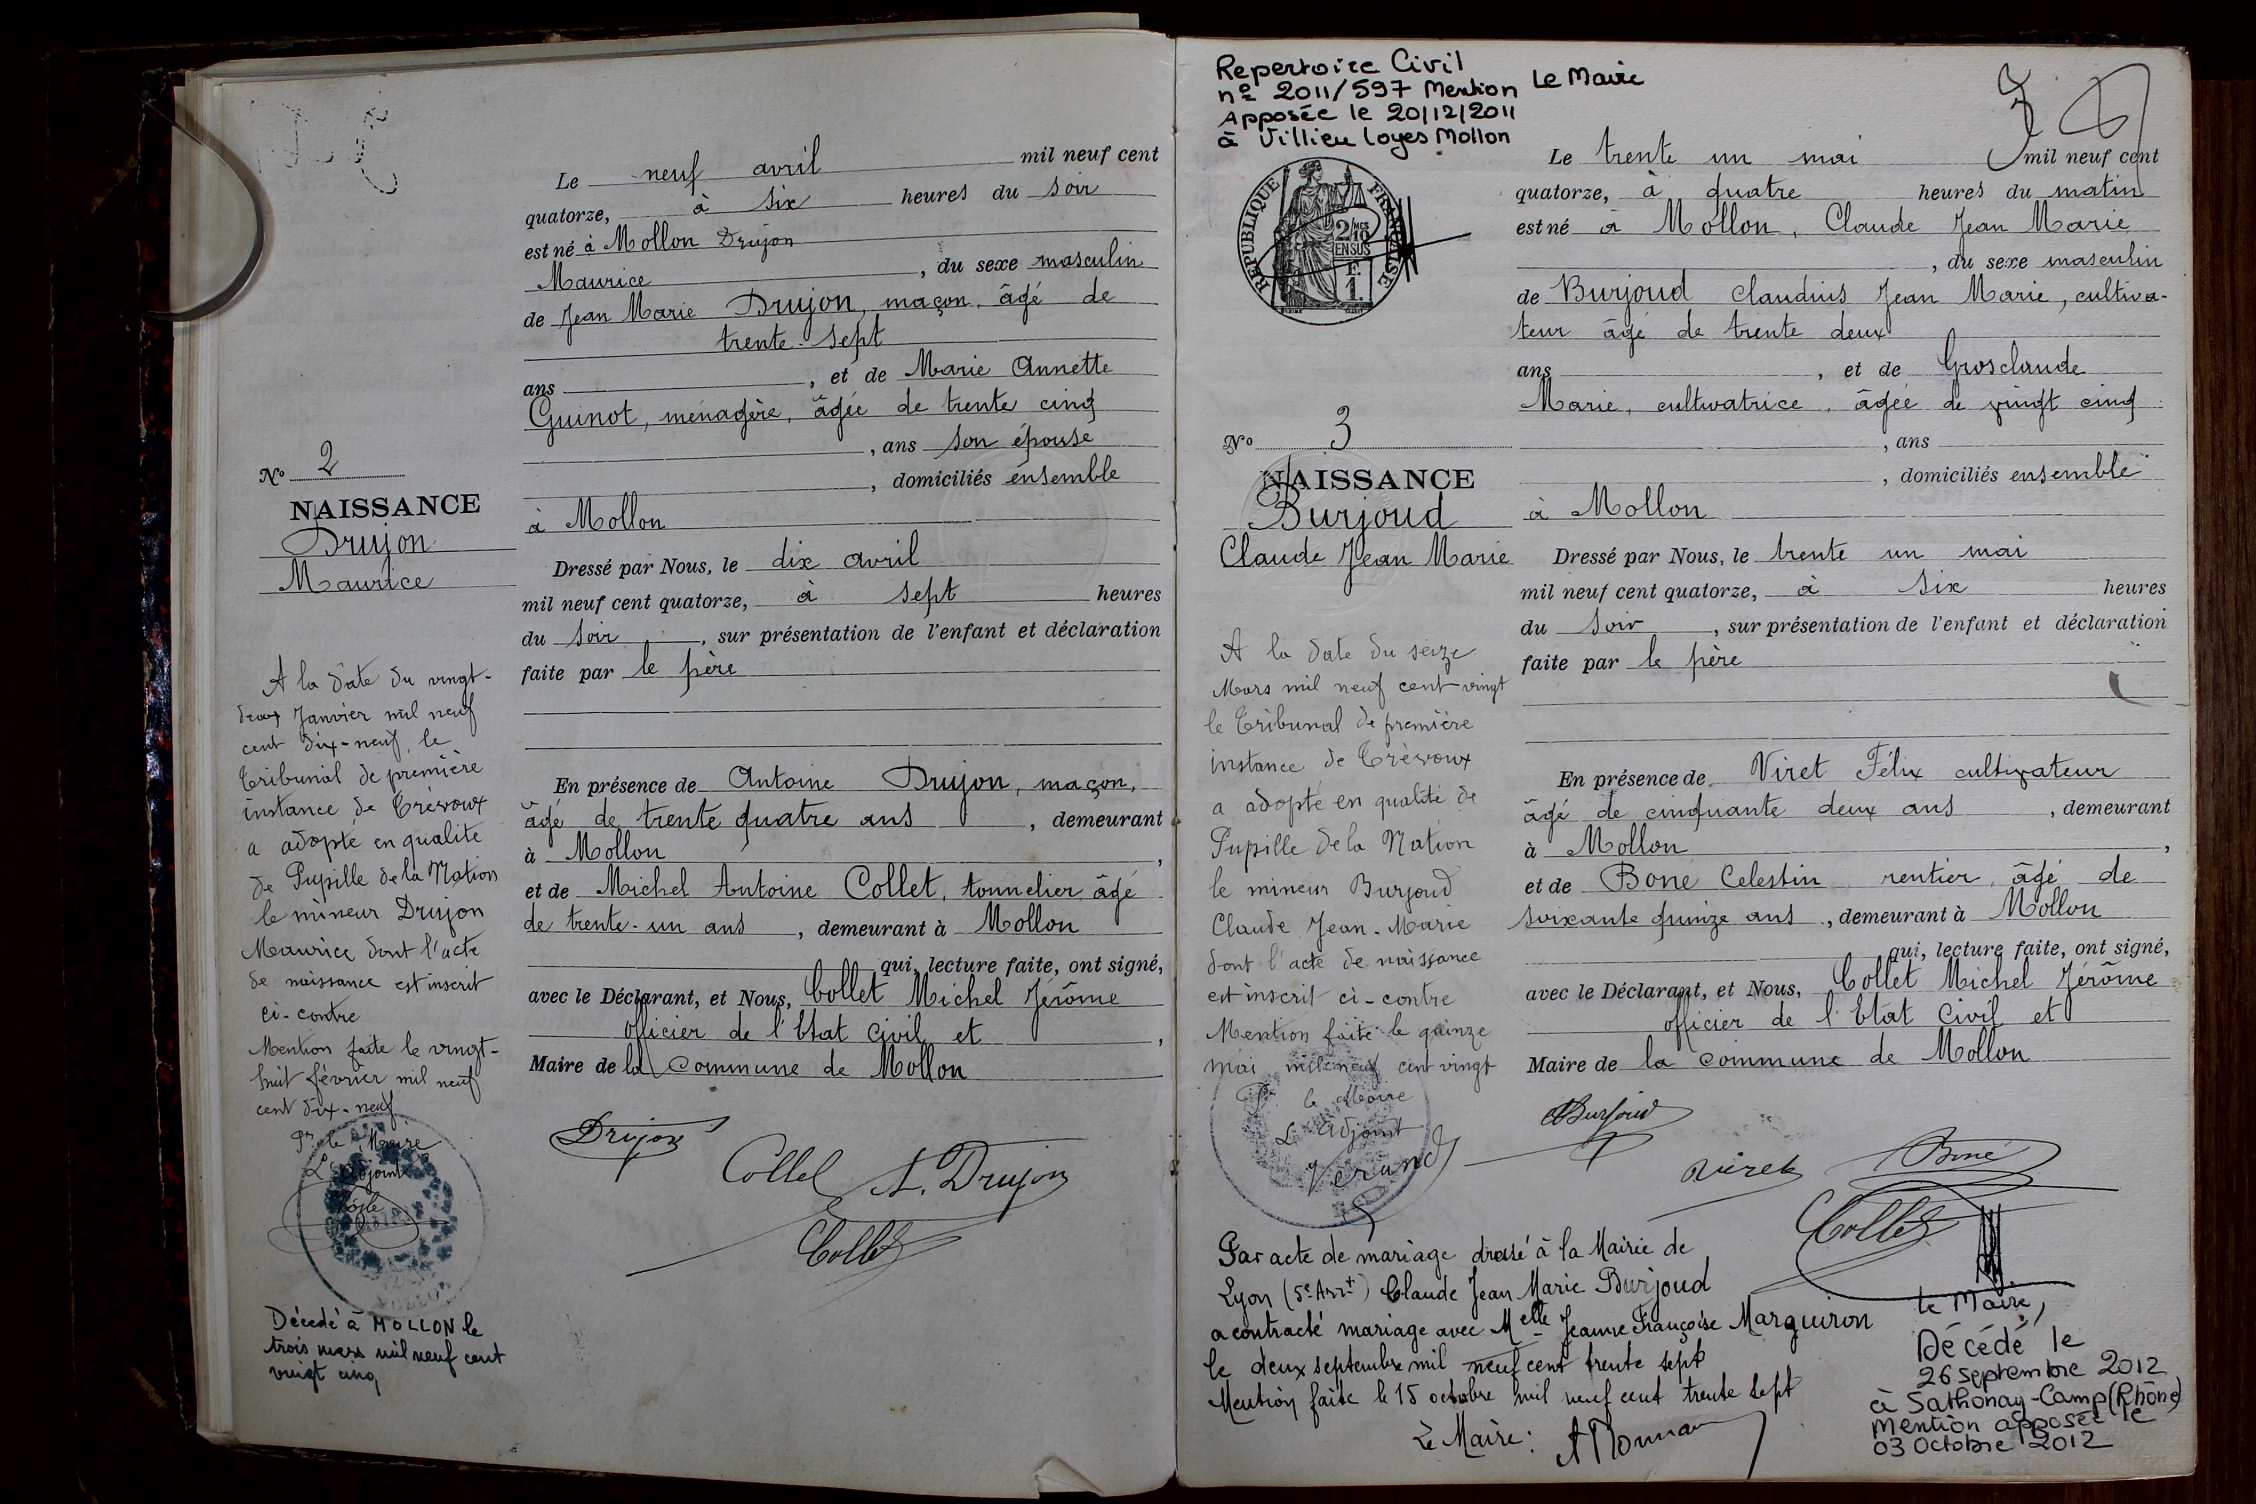 Le neuf avril mil neuf cent
quatorze, à six heures du soir
est né à Mollon Drujon
Maurice , du sexe masculin
de Jean Marie Drujon, maçon, âgé de
trente-sept
ans , et de Marie Annette
Guinot, ménagère, âgée de trente cinq
, ans son épouse
, domiciliés ensemble
à Mollon
Dressé par Nous, le dix avril
mil neuf cent quatorze, à sept heures
du soir , sur présentation de l'enfant et déclaration
faite par le père
En présence de Antoine Drujon, maçon,
âgé de trente quatre ans , demeurant
à Mollon ,
et de Michel Antoine Collet, tonnelier âgé
de trente-un ans , demeurant à Mollon
qui, lecture faite, ont signé,
avec le Déclarant, et Nous, Collet Michel Jérôme
officier de l'Etat Civil et ,
Maire de la commune de Mollon
Drujon
Collet A. Drujon
Collet
No 2
NAISSANCE
Drujon
Maurice
A la date du vingt-
deux Janvier mil neuf
cent dix-neuf, le
Tribunal de première
instance de Trévoux
a adopté en qualité
de Pupille de la Nation
le mineur Drujon
Maurice dont l'acte
de naissance est inscrit
ci-contre
Mention faite le vingt-
huit février mil neuf
cent dix-neuf
Pr le Maire
L'Adjoint
Décédé à MOLLON le
trois mars mil neuf cent
vingt cinq
Repertoire Civil
n° 2011/597 Mention Le Maire
Apposée le 20/12/2011
à Villieu Loyes Mollon
REPUBLIQUE FRANCAISE
2/10 MES
EN SUS
F.
1.
No 3
NAISSANCE
Burjoud
Claude Jean Marie
Le trente un mai mil neuf cent
quatorze, à quatre heures du matin
est né à Mollon, Claude Jean Marie
, du sexe masculin
de Burjoud Claudius Jean Marie, cultiva-
teur âgé de trente deux
ans , et de Grosclaude
Marie, cultivatrice, âgée de vingt cinq
, ans
, domiciliés ensemble
à Mollon
Dressé par Nous, le trente un mai
mil neuf cent quatorze, à six heures
du soir , sur présentation de l'enfant et déclaration
faite par le père
En présence de Viret Félix cultivateur
âgé de cinquante deux ans , demeurant
à Mollon ,
et de Boné Celestin rentier, âgé de
soixante quinze ans , demeurant à Mollon
qui, lecture faite, ont signé,
avec le Déclarant, et Nous, Collet Michel Jérôme
officier de l'Etat Civil et
Maire de la commune de Mollon
Burjoud
Viret Boné
Collet
A la date du seize
Mars mil neuf cent vingt
le Tribunal de première
instance de Trévoux
a adopté en qualité de
Pupille de la Nation
le mineur Burjoud
Claude Jean-Marie
dont l'acte de naissance
est inscrit ci-contre
Mention faite le quinze
mai mil neuf cent vingt
Pr le Maire
L'Adjoint
Par acte de mariage dressé à la Mairie de
Lyon (5e Arrt) Claude Jean Marie Burjoud
a contracté mariage avec Melle Jeanne Françoise Marguiron
le deux septembre mil neuf cent trente sept
Mention faite le 15 octobre mil neuf cent trente sept
Le Maire:
Le Maire,
Décédé le
26 septembre 2012
à Sathonay-Camp (Rhône)
mention apposée le
03 Octobre 2012